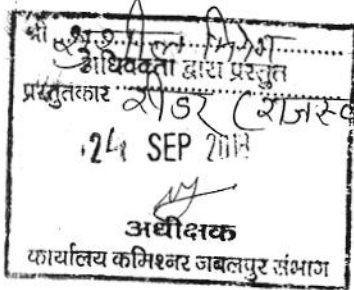 श्री सुशील मिश्रा
अधिवक्ता द्वारा प्रस्तुत
प्रस्तुतकार रीडर (राजस्व
24 SEP
अधीक्षक
कार्यालय कमिश्नर जबलपुर संभाग